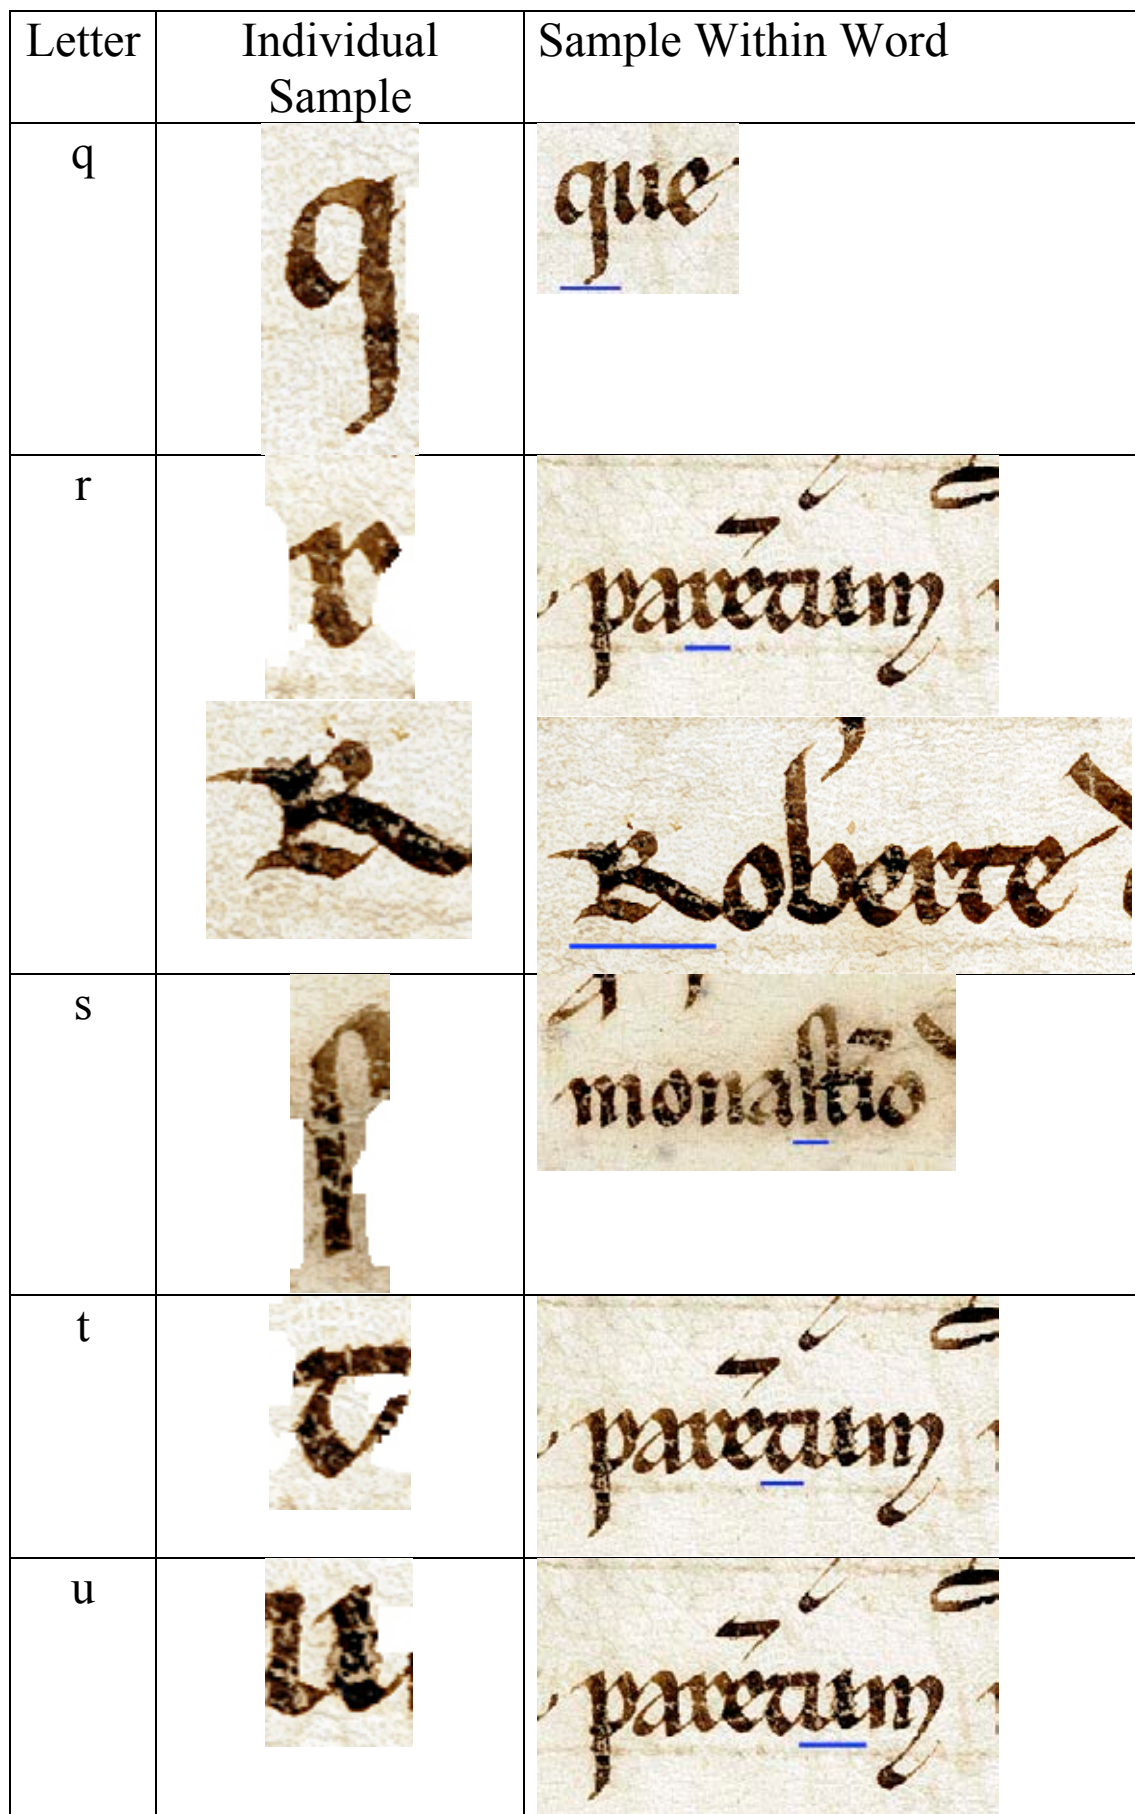 Letter
Individual
Sample
Sample Within Word
q
q
que
r
r
parētum
R
Roberte
s
ſ
monaſt̄io
t
t
parētum
u
u
parētum